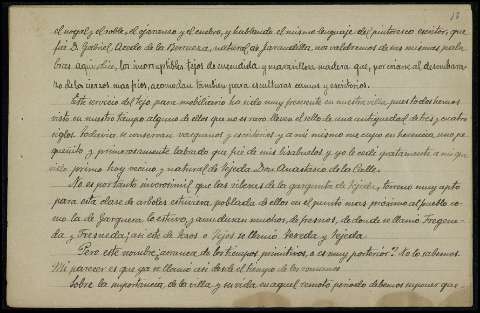 13
el nogal y el roble, el ojaranzo y el enebro, y hablando el mismo lenguaje del pintoresco escritor, que
fué D. Gabriel Acedo de la Berrueza, natural de Jarandilla, nos valdremos de sus mismas pala
bras aquí: dice, los incorruptibles tejos de encendida y maravillosa madera que, por criarse al desembara-
zo de los cierzos mas frios, acomodan tambien para esculturas camas y escritorios.
Este servicio del tejo para mobiliario ha sido muy frecuente en nuestra villa, pues todos hemos
visto en nuestro tiempo alguno de ellos que no es raro lleven el sello de una antiguedad de tres y cuatro
siglos. Todavia se conservan y escritorios y á mi mismo me cupo en herencia uno pe
queñito y primorosamente labrado que fué de mis bisabuelos y yo le cedí gratamente á mi que
rido primo hoy vecino y natural de Tejeda Don Anastasio de la Calle.
No es por tanto inverosimil que las riberas de la garganta de Tejeda, terreno muy apto
para esta clase de arboles estuviera, poblada de ellos en el punto mas próximo al pueblo co-
mo la de Jarguera lo estuvo, y aun duran muchos, de fresnos, de donde se llamó Fregene-
da y Fresneda; asi éste de Texos o Tejos se llamó Texeda y Tejeda.
Pero este nombre ¿arranca de los tiempos primitivos, o es muy posterior? No lo sabemos.
Mi parecer es que ya se llamó asi desde el tiempo de los romanos
Sobre la importancia, de la villa y su vida en aquel remoto periodo debemos suponer que-